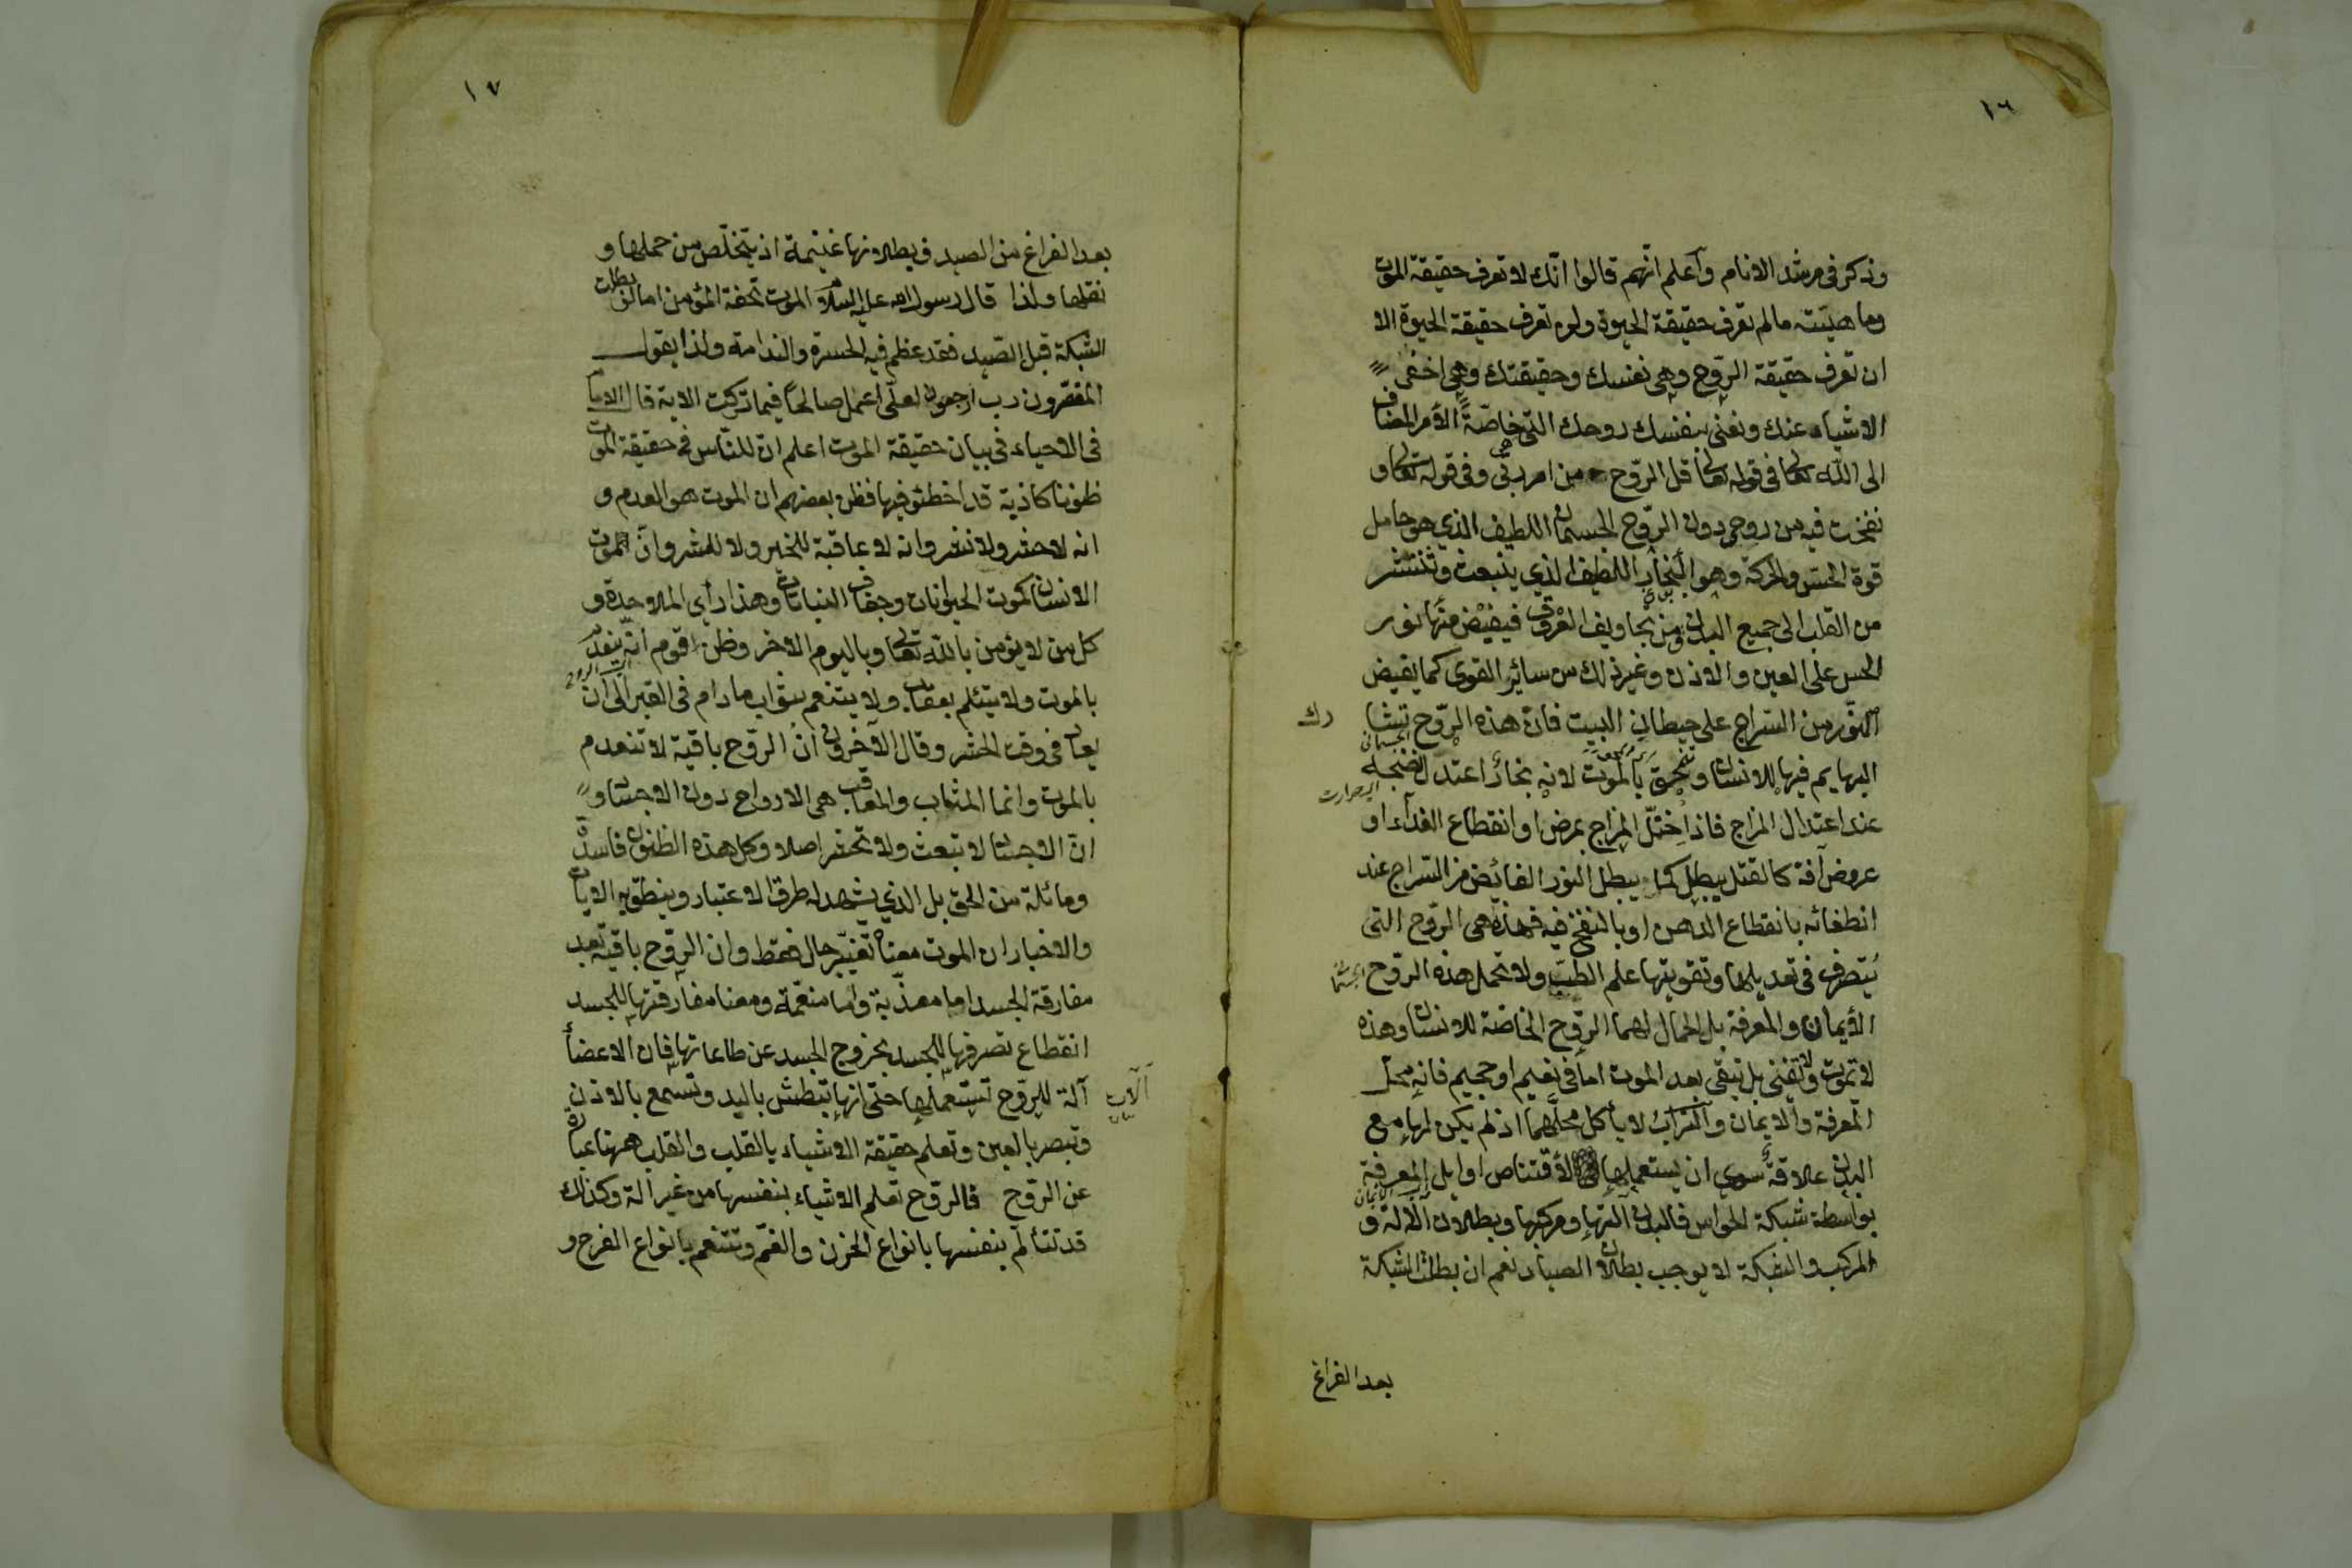 ١٦
وذكر فى مرشد الانام وأعلم انهم قالوا انّك لا تعرف حقيقة الموت
وما هيّته مالم تعرف حقيقة الحيوة ولم تعرف حقيقة الحيوة الا
ان تعرف حقيقة الرّوح وهى نفسك وحقيقتك وهى اخفى
الاشياء عنك ونعنى بنفسك روحك التى خاصّة الأمر المضاف
الى الله تعالى فى قوله تعالى قل الرّوح من امر ربّى وفى قوله تعالى و
نفخت فيه من روحى دون الرّوح الجسمانى اللطيف الذى هو حامل
قوة الحسّ والحركة وهو البخار اللطيف الذى ينبعث وتنتشر
من القلب الى جميع البدن من تجاويف العروق فيفيض منها نور
الحس على العين والاذن وغير ذلك من سائر القوى كما يفيض
النّور من السّراج على حيطان البيت فانّ هذه الرّوح تتشا رك
الجسمانى
البهايم فيها للانسان و بالموت لانه بخار اعتدل نضجه
الحرارت
عند اعتدال المزاج فاذا اختلّ المزاج بمرض او انقطاع الغذاء او
عروض آفة كالقتل يبطل كما يبطل النور الفائض من السّراج عند
انطفائه بانقطاع الدهن او بالنفخ فيه فهذه هى الرّوح التى
يتصرف فى تعديلها وتقويتها علم الطبّ ولا تحمل هذه الرّوح الجسمانى
الأيمان والمعرفة بل الحمال لهما الرّوح الخاصّة للانسان وهذه
لا تموت ولا تفنى بل تبقى بعد الموت امّا فى نعيم او جحيم فانه محلّ
المعرفة والايمان والتراب لا يأكل محلّهما اذ لم يكن لها مع
البدن علاقة سوى ان يستعملها لأقتناص اوايل المعرفة
الايمان
بواسطة شبكة الحواس فالبدن آلتها ومركبها وبطلان الآلة و
المركب والشبكة لا يوجب بطلان الصياد نعم ان بطلت الشبكة
بعد الفراغ
١٧
بعد الفراغ من الصيد فبطلانها غنيمة اذ يتخلّص من حملها و
نقلها ولذا قال رسول الله عليه السلام الموت تحفة المؤمن اما ان بطلت
الشبكة قبل الصّيد فقد عظم فيه الحسرة والندامة ولذا يقول
المقصرون رب ارجعون لعلّى اعمل صالحاً فيما تركت الاية قال الاما
فى الاحياء فى بيان حقيقة الموت اعلم ان للنّاس فى حقيقة الموت
ظنونا كاذبة قد اخطئو فيها فظن بعضهم ان الموت هو العدم و
انه لا حشر ولا نشر وانه لا عاقبة للخير ولا للشر وانّ الموت
الانسان كموت الحيوانات وجفاف النباتات وهذا رأى الملاحدة و
كل من لا يؤمن بالله تعالى وباليوم الاخر وظن قوم انّه ينعدم
بالموت ولا يتئلم بعقاب ولا يتنعم بثواب مادام فى القبر الى ان
الروح
يعاد فى وقت الحشر وقال الآخرون انّ الرّوح باقية لا تنعدم
بالموت وانما المثاب والمعاقب هى الارواح دون الاجساد و
انّ الاجساد لا تبعث ولا تحشر اصلا وكل هذه الظنون فاسدة
ومائلة من الحق بل الذى يشهد له طرق الاعتبار وينطق به الايات
والاخبار ان الموت معناه تغيّر حال فقط وان الرّوح باقية بعد
مفارقة الجسد اما معذّبة واما منعّمة ومعنا مفارقتها للجسد
انقطاع تصرفها للجسد بخروج الجسد عن طاعاتها فان الاعضأ
الآت
آلة للرّوح تستعملها حتى انها تبطش باليد وتسمع بالاذن
وتبصر بالعين وتعلم حقيقة الاشياء بالقلب والقلب ههنا عبارة
عن الرّوح فالروح تعلم الاشياء بنفسها من غير الة وكذلك
قد تتألّم بنفسها بانواع الحزن والغمّ وتتنعم بانواع الفرح و